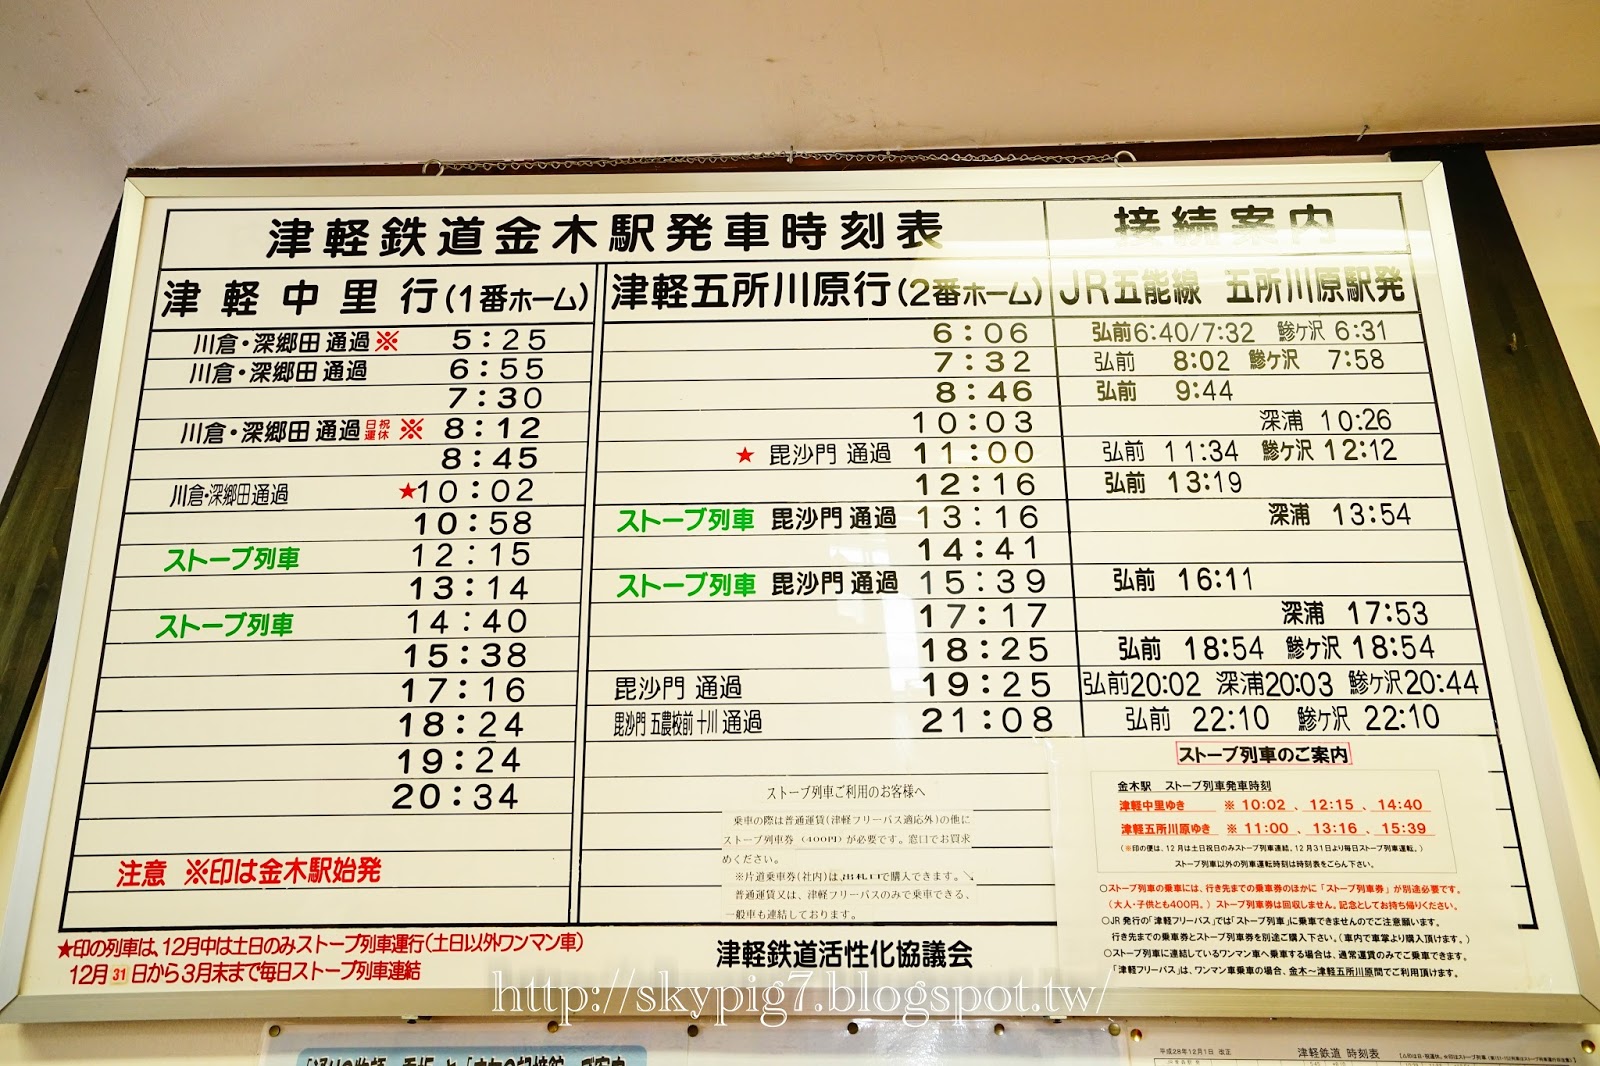 津軽鉄道金木駅発車時刻表
接続案内
津軽中里行(1番ホーム)
津軽五所川原行(2番ホーム)
JR五能線 五所川原駅発
川倉・深郷田 通過 ※ 5:25
川倉・深郷田 通過 6:55
7:30
川倉・深郷田 通過 日祝運休 ※ 8:12
8:45
川倉・深郷田通過 ★10:02
10:58
ストーブ列車 12:15
13:14
ストーブ列車 14:40
15:38
17:16
18:24
19:24
20:34
注意 ※印は金木駅始発
6:06 弘前6:40/7:32 鯵ケ沢 6:31
7:32 弘前 8:02 鯵ケ沢 7:58
8:46 弘前 9:44
10:03 深浦 10:26
★ 毘沙門 通過 11:00 弘前 11:34 鯵ケ沢 12:12
12:16 弘前 13:19
ストーブ列車 毘沙門 通過 13:16 深浦 13:54
14:41
ストーブ列車 毘沙門 通過 15:39 弘前 16:11
17:17 深浦 17:53
18:25 弘前 18:54 鯵ケ沢 18:54
毘沙門 通過 19:25 弘前20:02 深浦20:03 鯵ケ沢20:44
毘沙門 五農校前 十川 通過 21:08 弘前 22:10 鯵ケ沢 22:10
ストーブ列車ご利用のお客様へ
乗車の際は普通運賃(津軽フリーパス適応外)の他に
ストーブ列車券(400円)が必要です。窓口でお買求
めください。
※片道乗車券(社内)は、出札口で購入できます。
普通運賃又は、津軽フリーパスのみで乗車できる、
一般車も連結しております。
ストーブ列車のご案内
金木駅 ストーブ列車発車時刻
津軽中里ゆき ※ 10:02 、 12:15 、 14:40
津軽五所川原ゆき ※ 11:00 、 13:16 、 15:39
(※印の便は、12月は土日祝日のみストーブ列車連結。12月31日より毎日ストーブ列車運転。)
ストーブ列車以外の列車運転時刻は時刻表をごらん下さい。
○ストーブ列車の乗車には、行き先までの乗車券のほかに「ストーブ列車券」が別途必要です。
(大人・子供とも400円。) ストーブ列車券は回収しません。記念としてお持ち帰りください。
○JR発行の「津軽フリーパス」では「ストーブ列車」に乗車できませんのでご注意願います。
行き先までの乗車券とストーブ列車券を別途ご購入下さい。(車内で車掌より購入頂けます。)
○ストーブ列車に連結しているワンマン車へ乗車する場合は、通常運賃のみでご乗車できます。
「津軽フリーパス」は、ワンマン車乗車の場合、金木～津軽五所川原間でご利用頂けます。
★印の列車は、12月中は土日のみストーブ列車運行(土日以外ワンマン車)
12月31日から3月末まで毎日ストーブ列車連結
津軽鉄道活性化協議会
http://skypig7.blogspot.tw/
平成28年12月1日 改正
津軽鉄道 時刻表